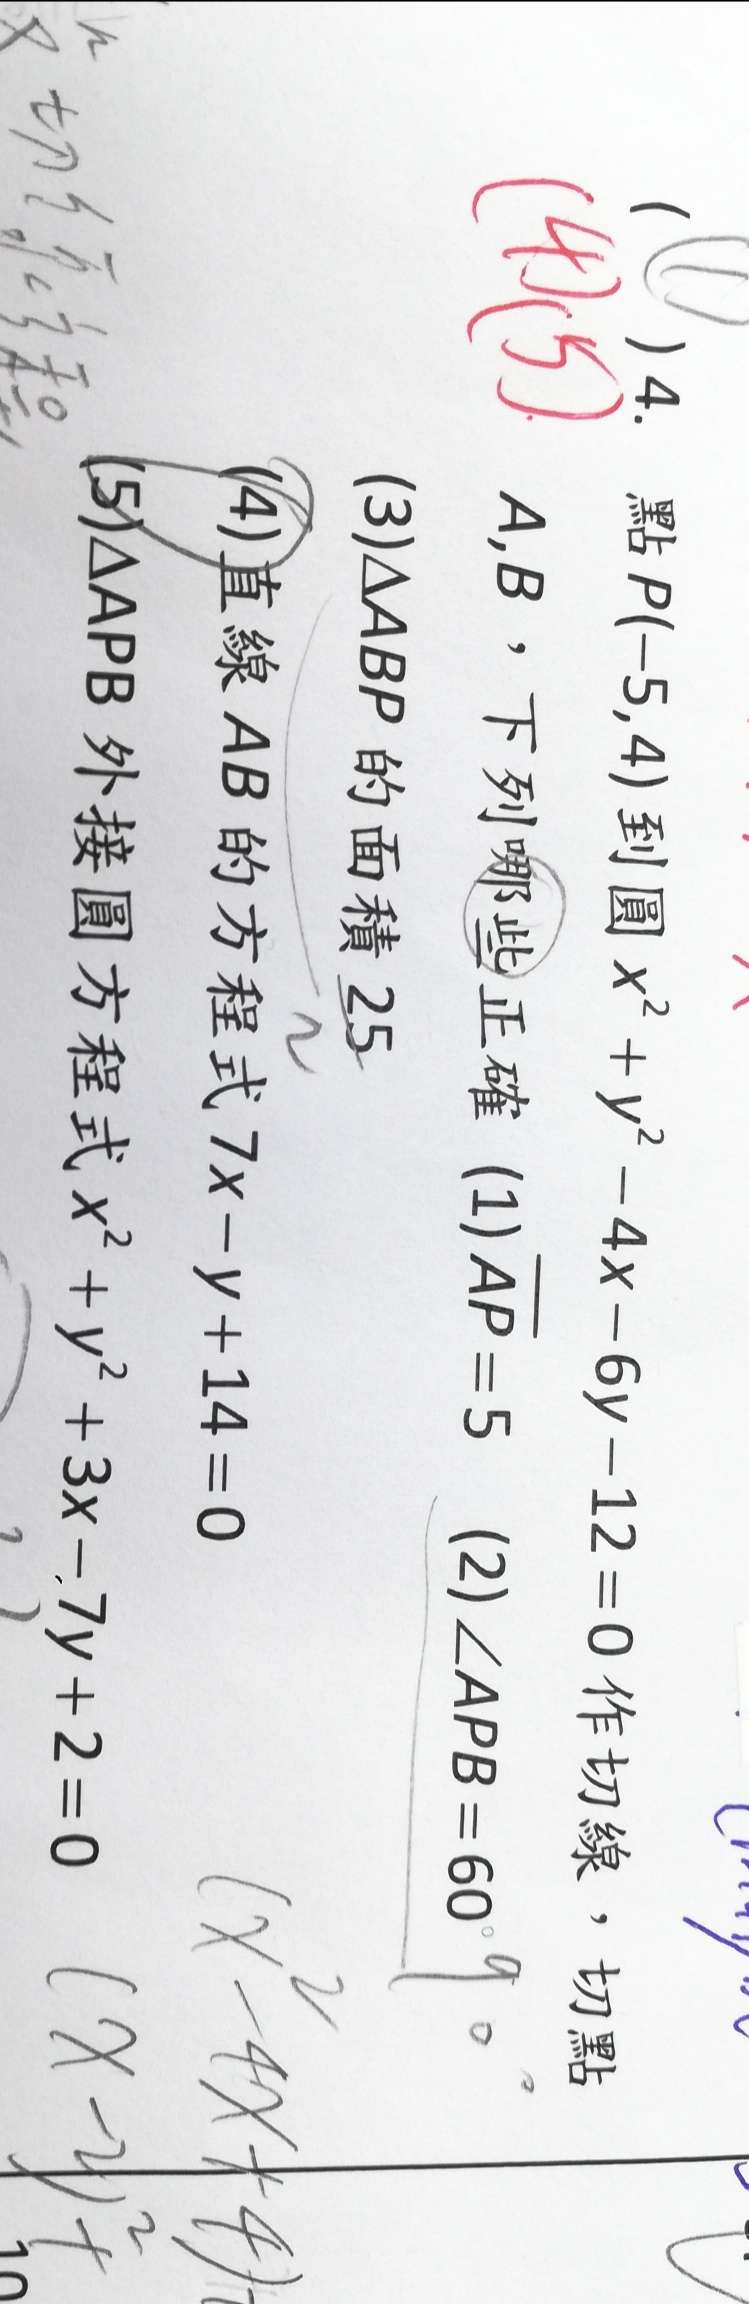 (1)4. 點P(−5,4)到圓x²+y²−4x−6y−12=0作切線，切點
(4)(5)
A,B，下列哪些正確 (1)AP=5 (2)∠APB=60° 90°
(3)△ABP的面積25
2
(4)直線AB的方程式7x−y+14=0
(x²−4x+4)+
(5)△APB外接圓方程式x²+y²+3x−7y+2=0
(x−2)²+
10